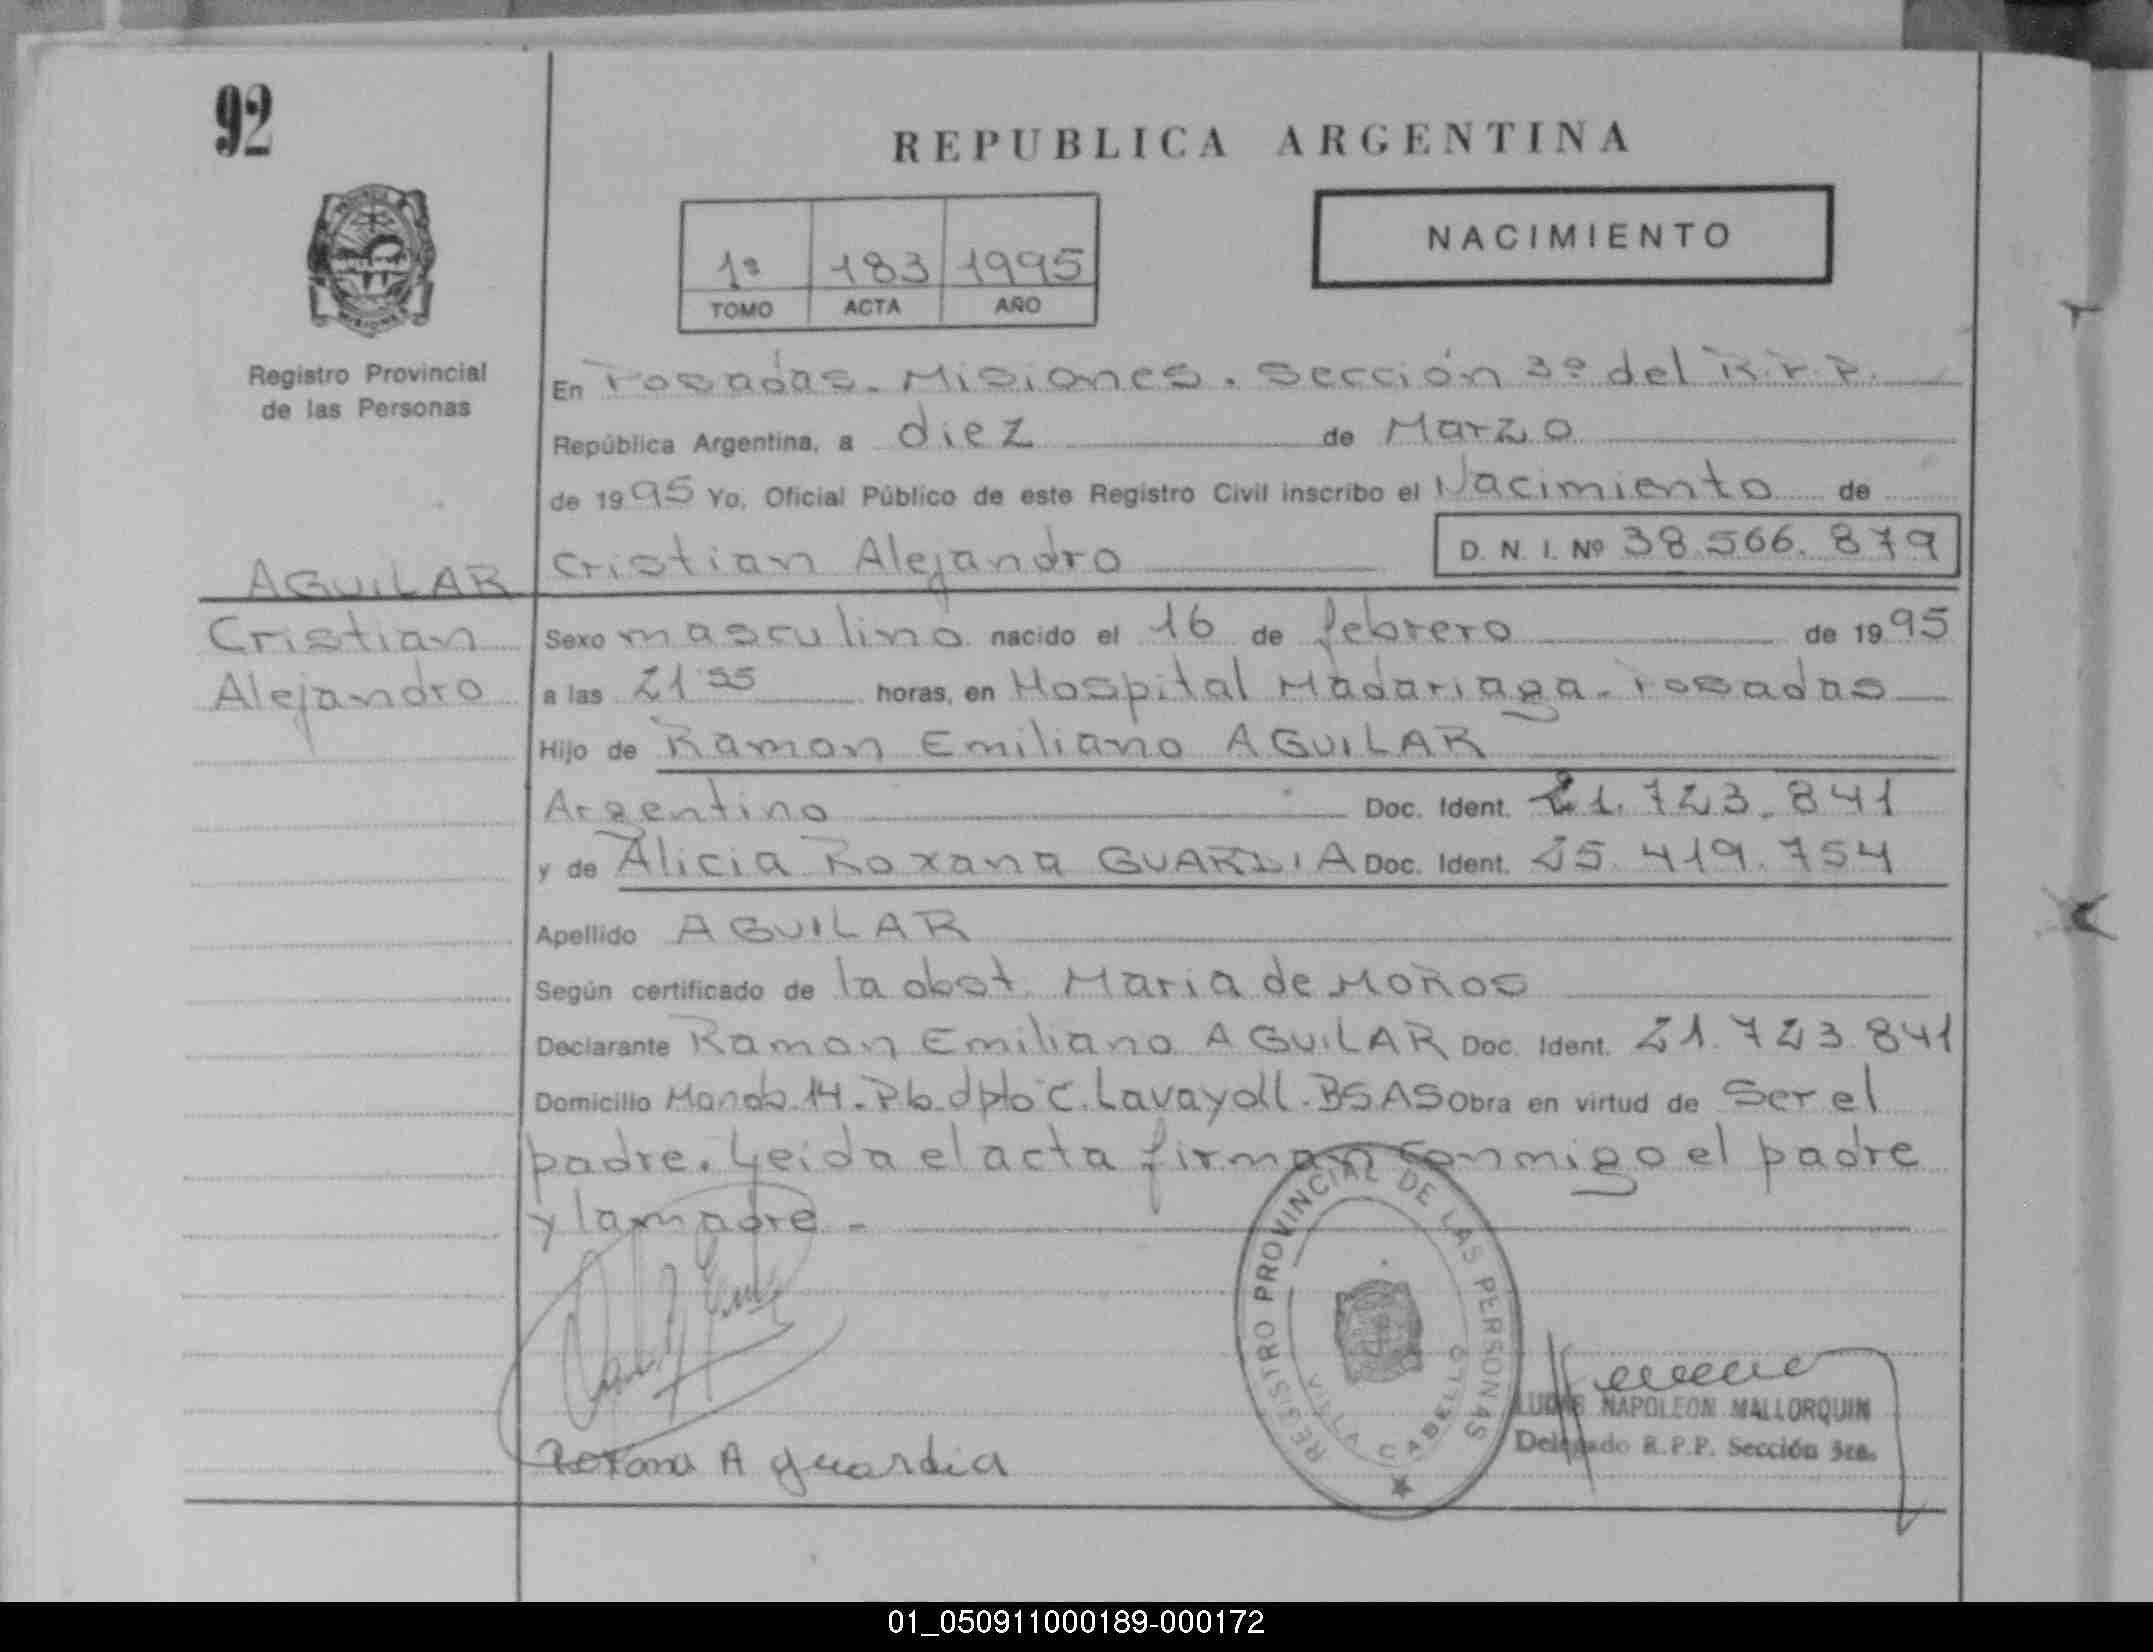 92
REPUBLICA ARGENTINA
NACIMIENTO
1º 183 1995
TOMO ACTA AÑO
Registro Provincial
de las Personas
En Posadas. Misiones. Sección 3º del R.P.P.
República Argentina, a diez de Marzo
de 1995 Yo, Oficial Público de este Registro Civil inscribo el Nacimiento de
Cristian Alejandro D. N. I. Nº 38.566.879
AGUILAR
Cristian
Alejandro
Sexo masculino nacido el 16 de febrero de 1995
a las 21 55 horas, en Hospital Madariaga - Posadas
Hijo de Ramon Emiliano AGUILAR
Argentino Doc. Ident. 21.723.841
y de Alicia Roxana GUARDIA Doc. Ident. 25.419.754
Apellido AGUILAR
Según certificado de la obst. Maria de
Declarante Ramon Emiliano AGUILAR Doc. Ident. 21.723.841
Domicilio 14. Pb. dpto C. Lavayoll. BSAS Obra en virtud de Ser el
padre. Leida el acta firman conmigo el padre
y la madre.-
REGISTRO PROVINCIAL DE LAS PERSONAS
VILLA CABELLO
Roxana A guardia
LUCAS NAPOLEON MALLORQUIN
Delegado R.P.P. Sección 3ra.
01_050911000189-000172